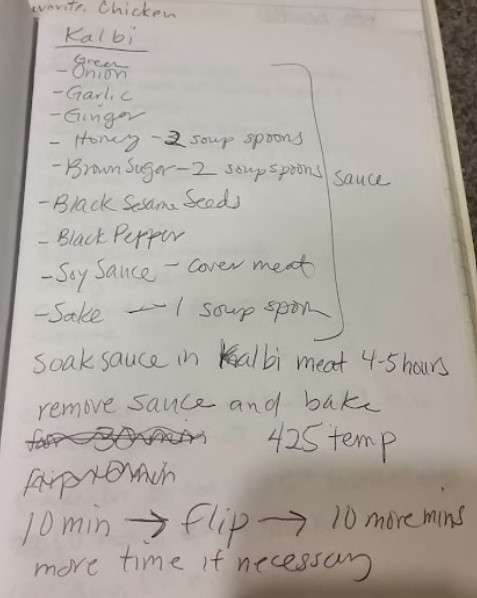 Chicken
Kalbi
- Green Onion
- Garlic
- Ginger
- Honey - 2 soup spoons
- Brown Sugar - 2 soup spoons
sauce
- Black Sesame Seeds
- Black Pepper
- Soy Sauce - cover meat
- Sake - 1 soup spon
soak sauce in Kalbi meat 4-5 hours
remove sauce and bake
for 30 min 425 temp
10 min → flip → 10 more mins
more time if necessary